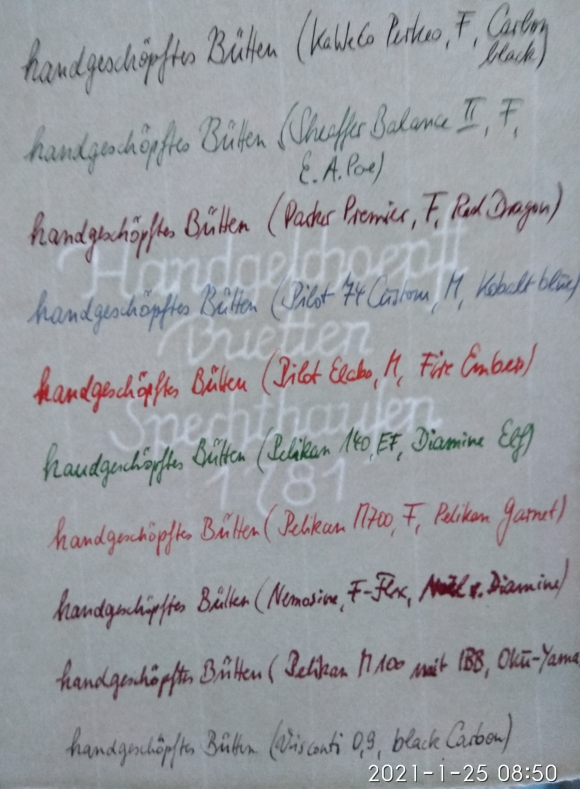 handgeschöpftes Bütten (KaWeCo Perkeo, F, Carbon
black)
handgeschöpftes Bütten (Sheaffer Balance II, F,
E. A. Poe)
handgeschöpftes Bütten (Parker Premier, F, Red Dragon)
Handgeschoepft
handgeschöpftes Bütten (Pilot 74 Custom, M, Kobalt blue)
Buetten
handgeschöpftes Bütten (Pilot Elabo, M, Fire Ember)
Spechthausen
handgeschöpftes Bütten (Pelikan 140, EF, Diamine Elf)
1781
handgeschöpftes Bütten (Pelikan M700, F, Pelikan Garnet)
handgeschöpftes Bütten (Nemosine, F-Flex, Diamine)
handgeschöpftes Bütten (Pelikan M100 mit IBB, Oku-Yama
handgeschöpftes Bütten (Visconti 0,9, black Carbon)
2021-1-25 08:50